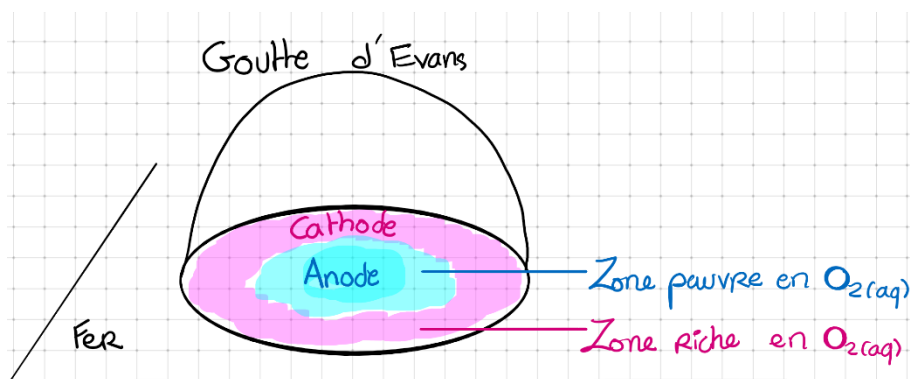 Goutte d'Evans
Cathode
Anode
Zone pauvre en O2(aq)
Fer
Zone riche en O2(aq)